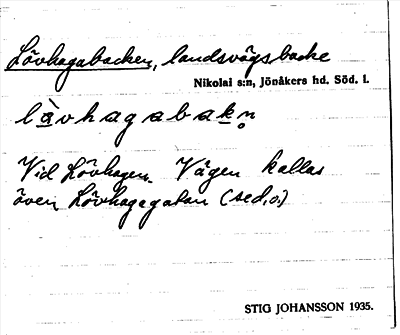 Lövhagabacken, landsvägsbacke
Nikolai s:n, Jönåkers hd. Söd. l.
làvhagabakn̥
Vid Lövhagen. Vägen kallas
även Lövhagegatan (sed.o.)
STIG JOHANSSON 1935.